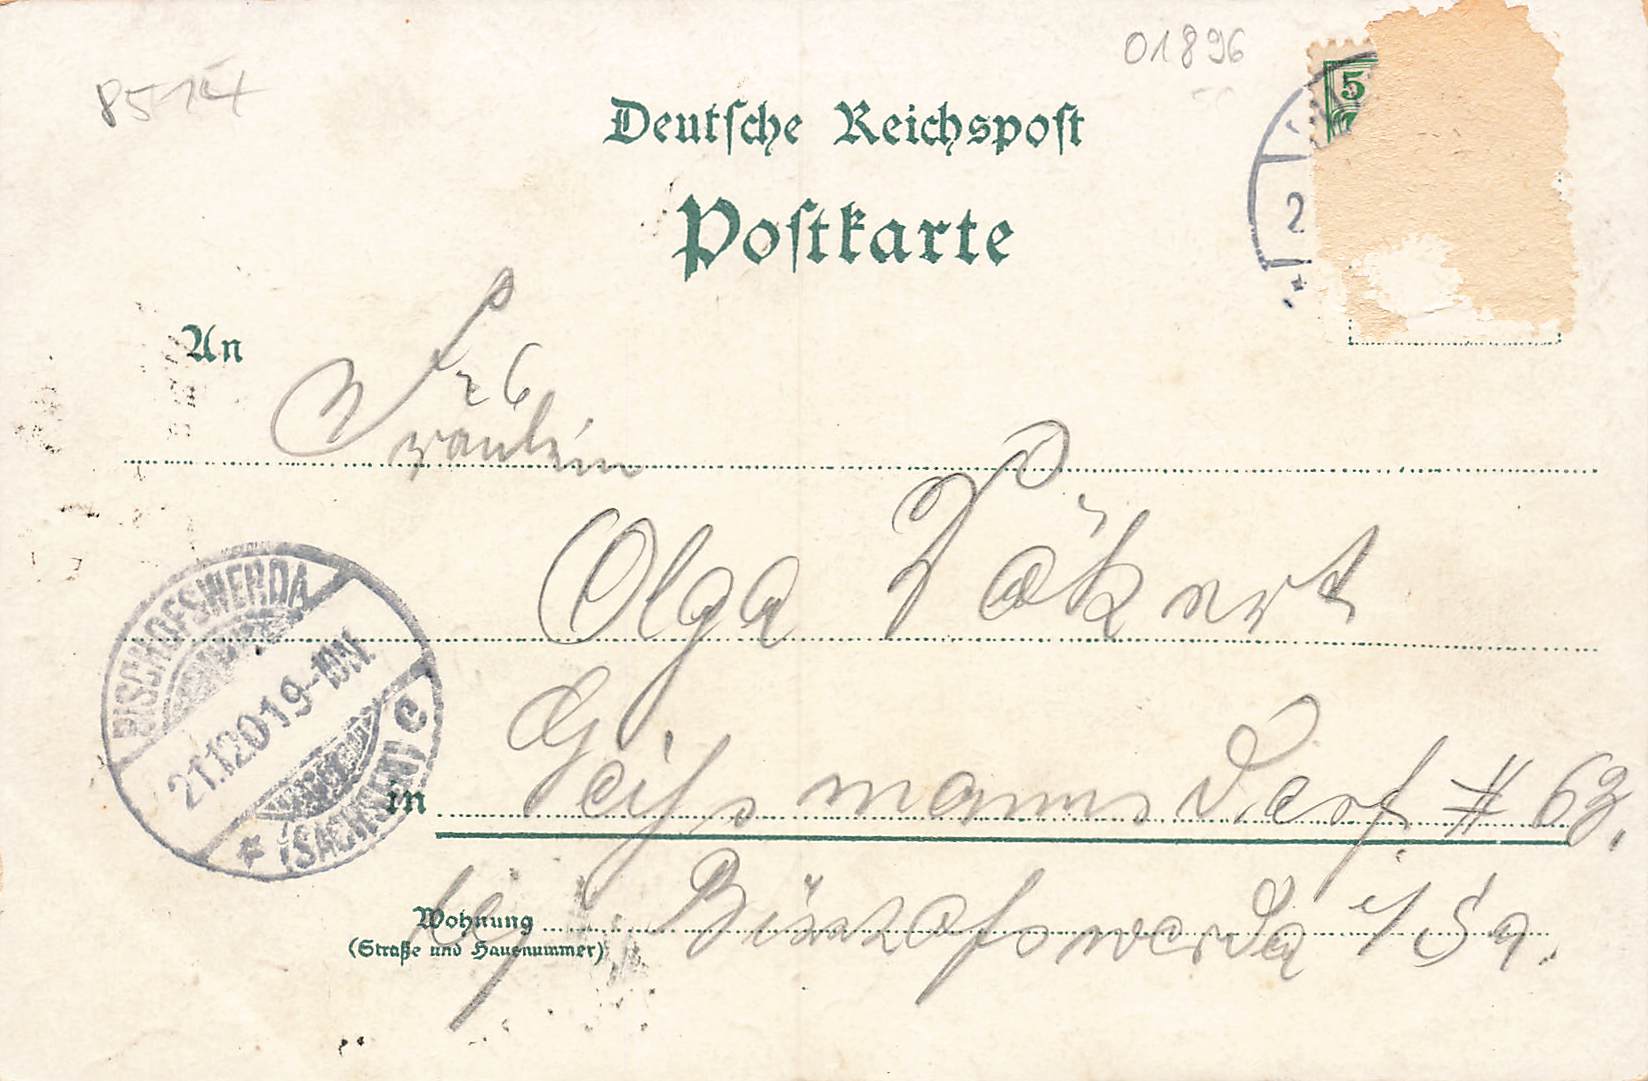 8514
01896
5
Deutsche Reichspost
Postkarte
2
An
Fräulein
Olga
Geißmannsdorf # 63.
in
bei Bischofswerda i/Sa.
Wohnung
(Straße und Hausnummer)
BISCHOFSWERDA
(SACHSEN) C